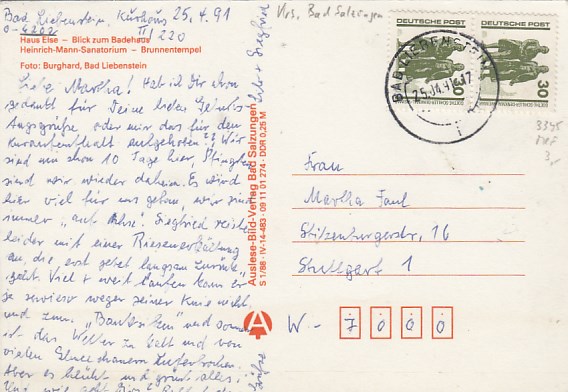 Bad Liebenstein, Kurhaus 25.4.91
O-6202 III/220
Haus Else – Blick zum Badehaus
Heinrich-Mann-Sanatorium – Brunnentempel
Foto: Burghard, Bad Liebenstein
Liebe Martha! Hab ich Dir schon
gedankt für Deine lieben Geburts
oder mir das für den
Kuraufenthalt aufgehoben?? Wir
sind nun schon 10 Tage hier, Pfingsten
sind wir wieder daheim. Es wird
hier viel für uns getan, wir sind
immer "auf Achse". Siegfried reiste
leider mit einer Riesenerkältung
an, die erst jetzt langsam zurück-
geht. Viel + weit laufen kann er
ja sowieso wegen seiner Knie nicht
und zum und
ist das Wetter zu kalt und von
vielen
Aber es blüht und grünt alles.
Und wie geht
Siegfried
Auslese-Bild-Verlag Bad Salzungen
S 1/86 · IV-14-483 · 09 11 01 274 · DDR 0,25 M
Vrs. Bad Salzungen
DEUTSCHE POST
DEUTSCHE POST
30
30
BAD LIEBENSTEIN
25.04.91
3345
3,-
Frau
Martha Faul
Stitzenburgerstr. 16
Stuttgart 1
W - 7000